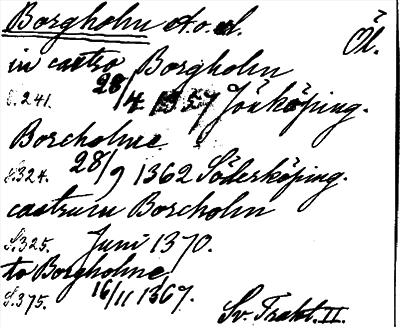 Borgholm s.o.d. Öl.
in castro Borgholm
S.241. 28/4 1357 Jönköping.
Borcholme
S.324. 28/9 1362 Söderköping.
castrum Borcholm
S.325. Juni 1370.
to Borgholme
S.375. 16/11 1367. Sv. Trakt. II.